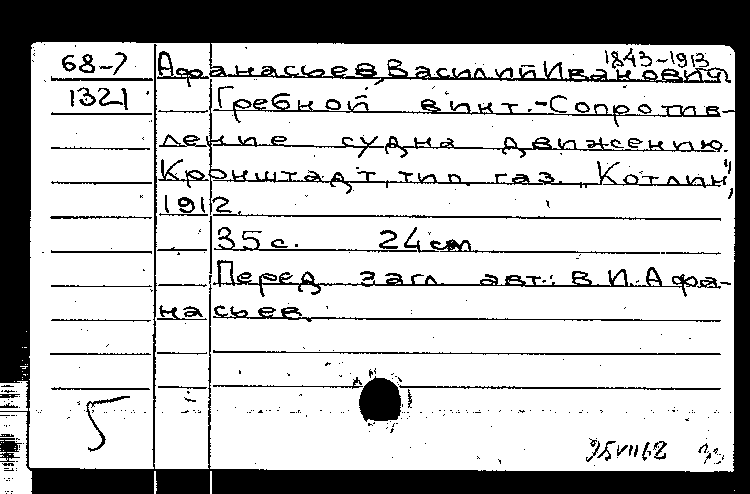 1843-1913
68-7 Афанасьев, Василий Иванович.
1321 Гребной винт.-Сопротив-
ление судна движению.
Кронштадт, тип. газ. „Котлин",
1912.
35 с. 24 см.
Перед загл. авт.: В.И. Афа-
насьев.
5